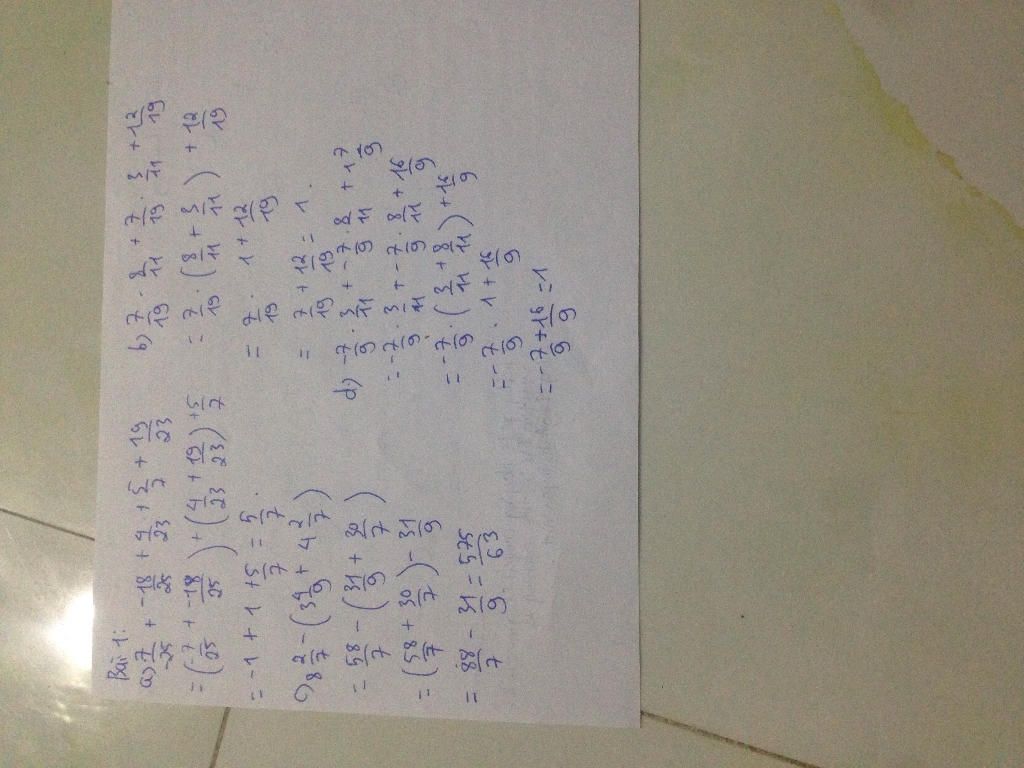 Bài 1:
a) 7/-25 + -18/25 + 4/23 + 5/7 + 19/23
= (-7/25 + -18/25) + (4/23 + 19/23) + 5/7
= -1 + 1 + 5/7 = 5/7.
c) 8 2/7 - (3 4/9 + 4 2/7)
= 58/7 - (31/9 + 30/7)
= (58/7 + 30/7) - 31/9
= 88/7 - 31/9 = 575/63
b) 7/19 . 8/11 + 7/19 . 3/11 + 12/19
= 7/19 . (8/11 + 3/11) + 12/19
= 7/19 . 1 + 12/19
= 7/19 + 12/19 = 1.
d) -7/9 . 3/11 + -7/9 . 8/11 + 1 7/9
= -7/9 . 3/11 + -7/9 . 8/11 + 16/9
= -7/9 . (3/11 + 8/11) + 16/9
= -7/9 . 1 + 16/9
= -7/9 + 16/9 = 1